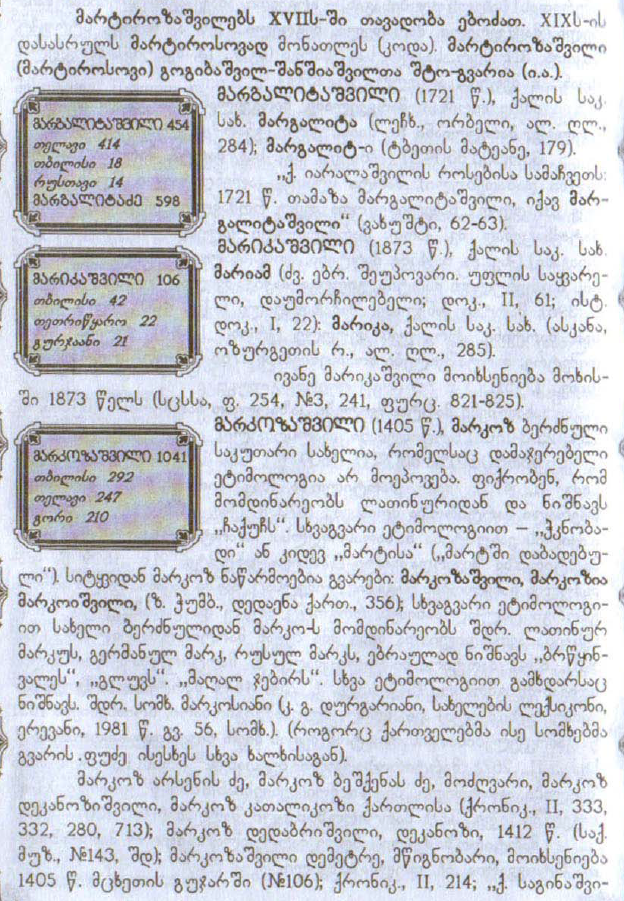 მარტიროზაშვილებს XVIIს-ში თავადობა ებოძათ. XIXს-ის
დასასრულს მარტიროსოვად მონათლეს (კოდა). მარტიროზაშვილი
(მარტიროსოვი) გოგიბაშვილ-შანშიაშვილთა შტო-გვარია (ი.ა.).
მარგალიტაშვილი 454
თელავი 414
თბილისი 18
რუსთავი 14
მარგალიტაძე 598
მარგალიტაშვილი (1721 წ.), ქალის საკ.
სახ. მარგალიტა (ლეჩხ., ორბელი, ალ. ღლ.,
284); მარგალიტ-ი (ტბეთის მატეანე, 179).
„ქ. იარალაშვილის როსებისა სამაჩვეთს:
1721 წ. თამაზა მარგალიტაშვილი, იქავ მარ-
გალიტაშვილი“ (ვახუშტი, 62-63).
მარიკაშვილი 106
თბილისი 42
თეთრიწყარო 22
გურჯაანი 21
მარიკაშვილი (1873 წ.), ქალის საკ. სახ.
მარიამ (ძვ. ებრ. შეუპოვარი. უფლის საყვარე-
ლი, დაუმორჩილებელი; დოკ., II, 61; ისტ.
დოკ., I, 22): მარიკა, ქალის საკ. სახ. (ასკანა,
ოზურგეთის რ., ალ. ღლ., 285).
ივანე მარიკაშვილი მოიხსენიება მოხის-
ში 1873 წელს (სცსსა, ფ. 254, №3, 241, ფურც. 821-825).
მარკოზაშვილი 1041
თბილისი 292
თელავი 247
გორი 210
მარკოზაშვილი (1405 წ.), მარკოზ ბერძნული
საკუთარი სახელია, რომელსაც დამაჯერებელი
ეტიმოლოგია არ მოეპოვება. ფიქრობენ, რომ
მომდინარეობს ლათინურიდან და ნიშნავს
„ჩაქუჩს“. სხვაგვარი ეტიმოლოგიით – „ჭკნობა-
დი“ ან კიდევ „მარტისა“ („მარტში დაბადებუ-
ლი“). სიტყვიდან მარკოზ ნაწარმოებია გვარები: მარკოზაშვილი, მარკოზია
მარკოიშვილი, (ზ. ჭუმბ., დედაენა ქართ., 356); სხვაგვარი ეტიმოლოგი-
ით სახელი ბერძნულიდან მარკო-ს მომდინარეობს შდრ. ლათინურ
მარკუს, გერმანულ მარკ, რუსულ მარკს, ებრაულად ნიშნავს „ბრწყინ-
ვალეს“, „გლუვს“. „მაღალ ჯებირს“. სხვა ეტიმოლოგიით გამხდარსაც
ნიშნავს. შდრ. სომხ. მარკოსიანი (კ. გ. დურგარიანი, სახელების ლექსიკონი,
ერევანი, 1981 წ. გვ. 56, სომხ.). (როგორც ქართველებმა ისე სომხებმა
გვარის ფუძე ისესხეს სხვა ხალხისაგან).
მარკოზ არსენის ძე, მარკოზ ბეშქენას ძე, მოძღვარი, მარკოზ
დეკანოზიშვილი, მარკოზ კათალიკოზი ქართლისა (ქრონიკ., II, 333,
332, 280, 713); მარკოზ დედაბრიშვილი, დეკანოზი, 1412 წ. (საქ.
მუზ., №143, შდ); მარკოზაშვილი დემეტრე, მწიგნობარი, მოიხსენიება
1405 წ. მცხეთის გუჯარში (№106); ქრონიკ., II, 214; „ქ. საგინაშვი-